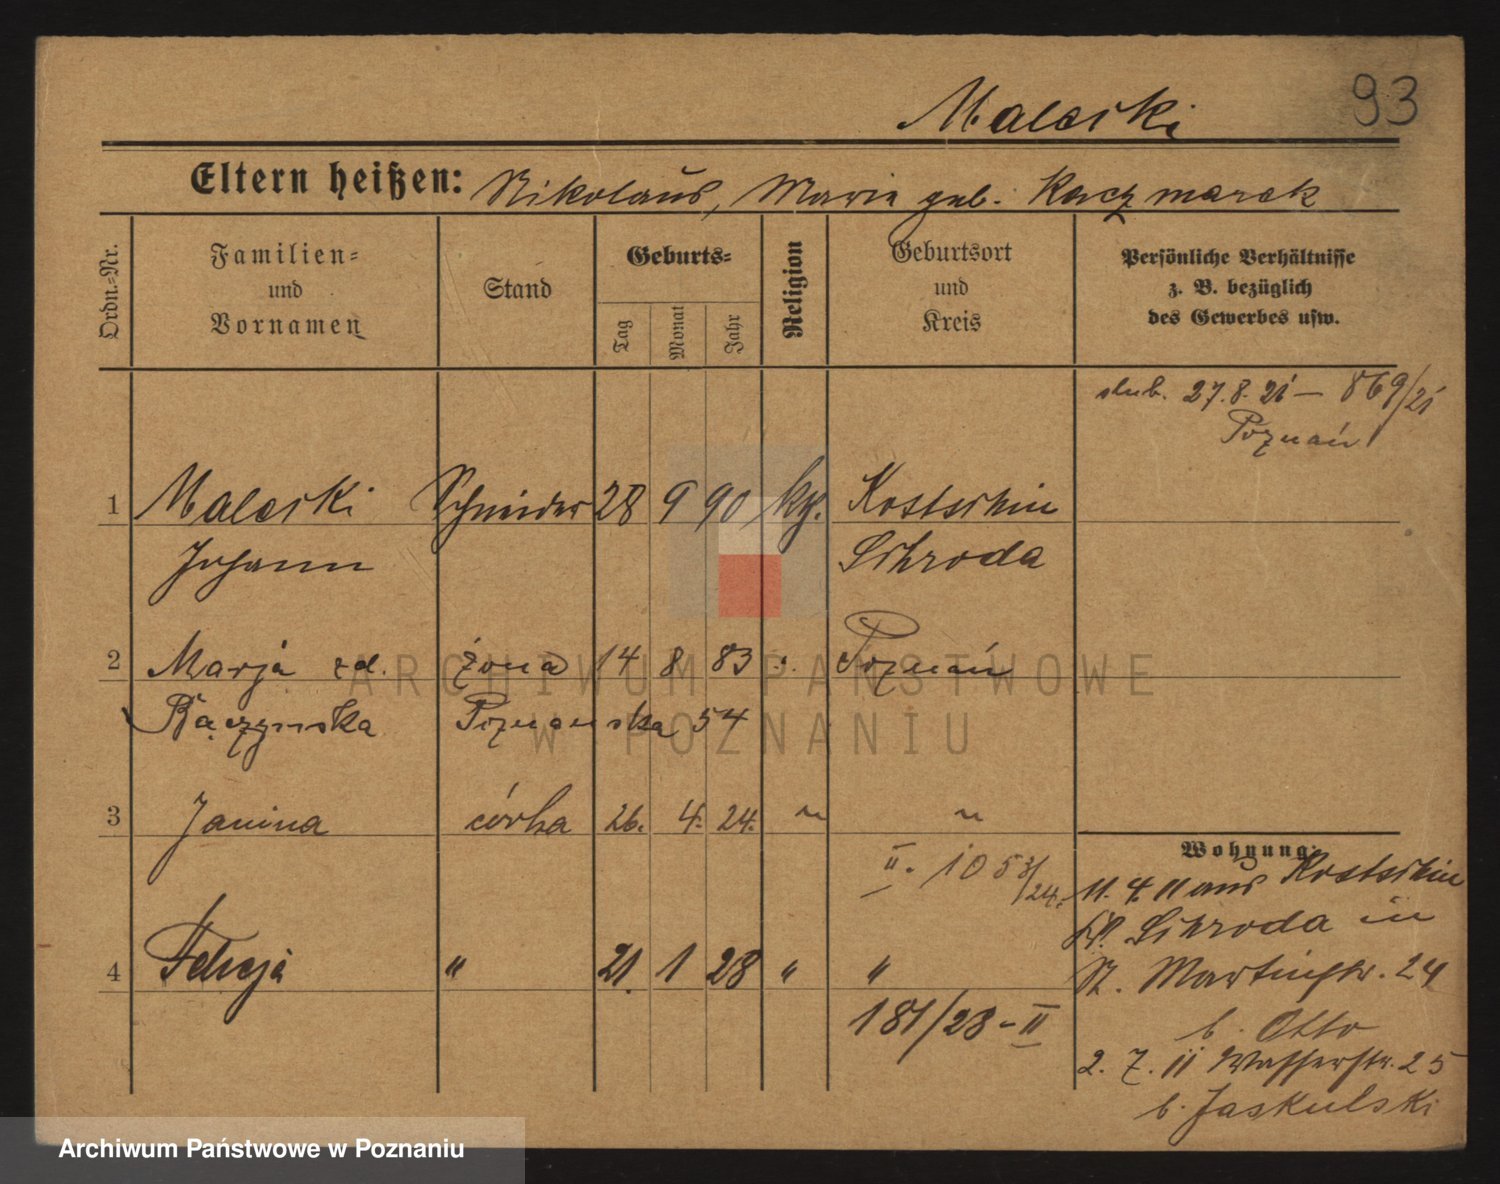 Maleski 93
Eltern heißen: Nikolaus, Marie geb. Kaczmarek
Ordn.-Nr.
Familien-
und
Vornamen
Stand
Geburts-
Tag
Monat
Jahr
Religion
Geburtsort
und
Kreis
Persönliche Verhältnisse
z. B. bezüglich
des Gewerbes usw.
ślub. 27.8.21 — 869/21
Poznań
1 Maleski Schneider 28 9 90 kg. Kostschin
Johann Schroda
2 Marja zd. żona 14 8 83 " Poznań
Bączyńska Poznańska 54
3 Janina córka 26. 4. 24. " "
II. 1053/24.
4 Felicja " 21. 1 28 " "
181/28-II
Wohnung:
11. 4. 11 aus Kostschin
Kr. Schroda in
St. Martinstr. 24
b. Otto
2. 7. 11 Wasserstr. 25
b. Jaskulski
ARCHIWUM PAŃSTWOWE
W POZNANIU
Archiwum Państwowe w Poznaniu